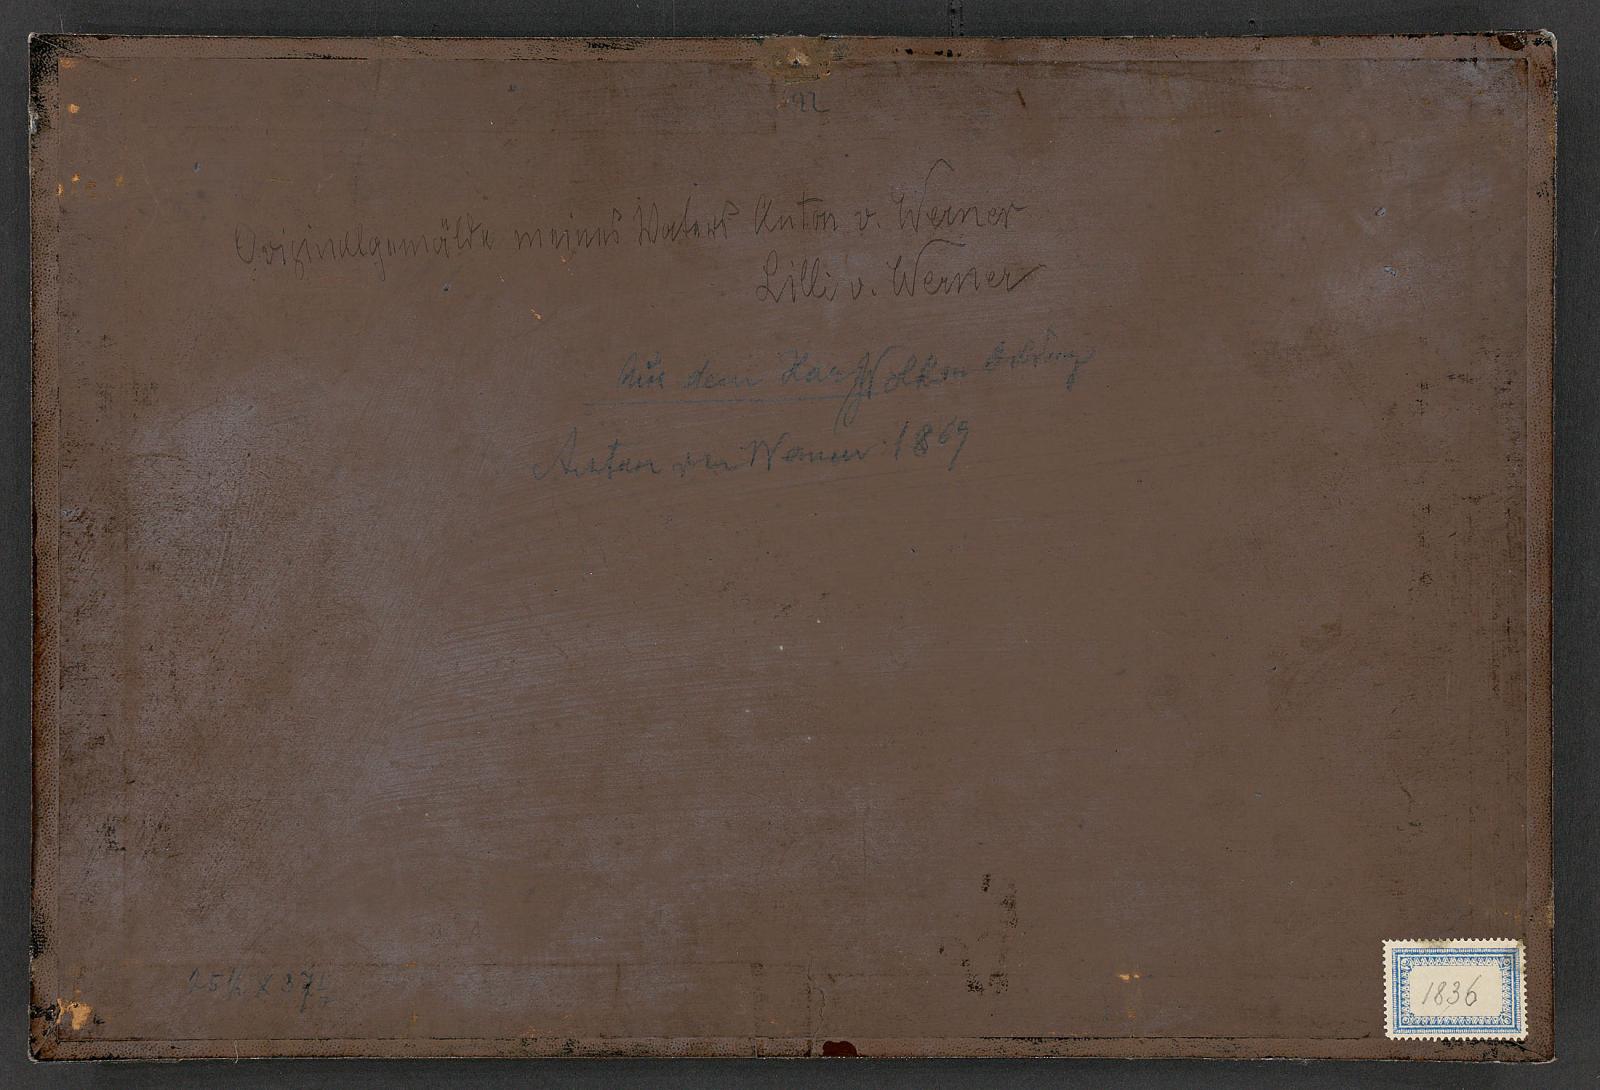 92
Originalgemälde meines Vaters Anton v. Werner
Lilli v. Werner
Aus dem Harz Wolken
Anton von Werner 1869
25½ x 37½
1836